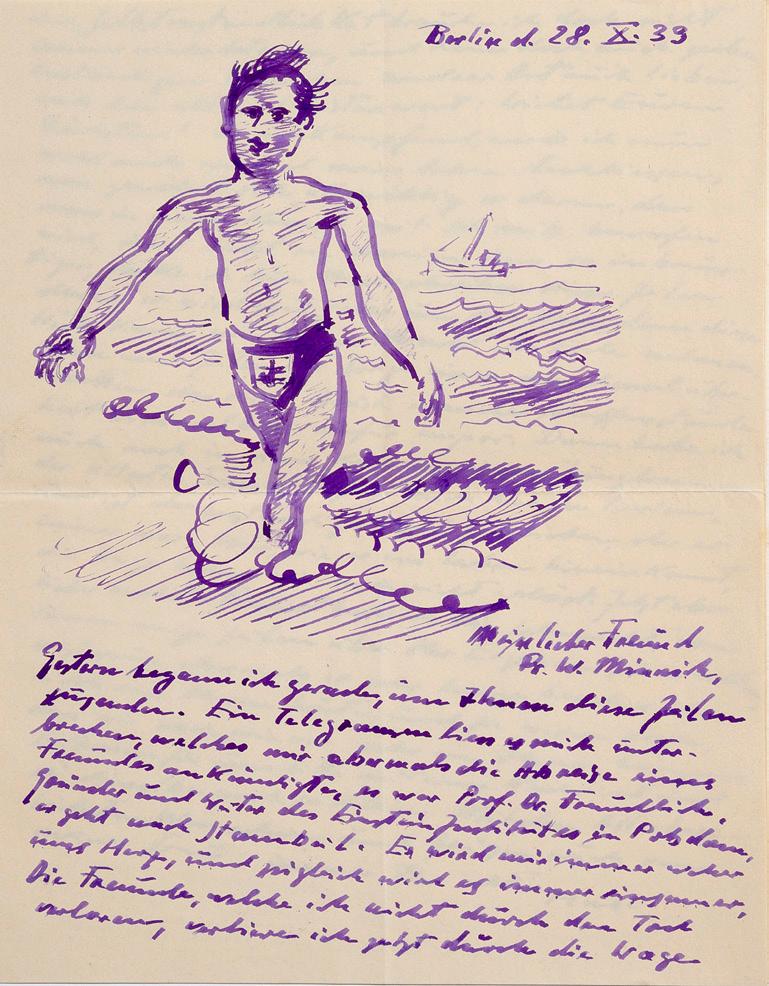 Berlin d. 28. X. 33
Mein lieber Freund
Dr. W. Minnich,
Gestern begann ich gerade, um Ihnen diese Zeilen
zusenden. Ein Telegramm liess es mich unter-
brechen, welches mir abermals die Abreise eines
Freundes ankündigte, es war Prof. Dr. Freundlich,
Gründer und Leiter des Einstein Institutes in Potsdam,
er geht nach Stambul. Es wird mir immer weher
ums Herz, und zugleich wird es immer einsamer,
Die Freunde, welche ich nicht durch den Tod
verloren, verliere ich jetzt durch die Wege